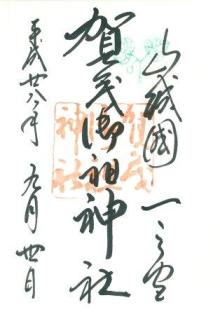 山城國一之宮
賀茂御祖神社
平成廿八年九月四日
賀茂御祖神社